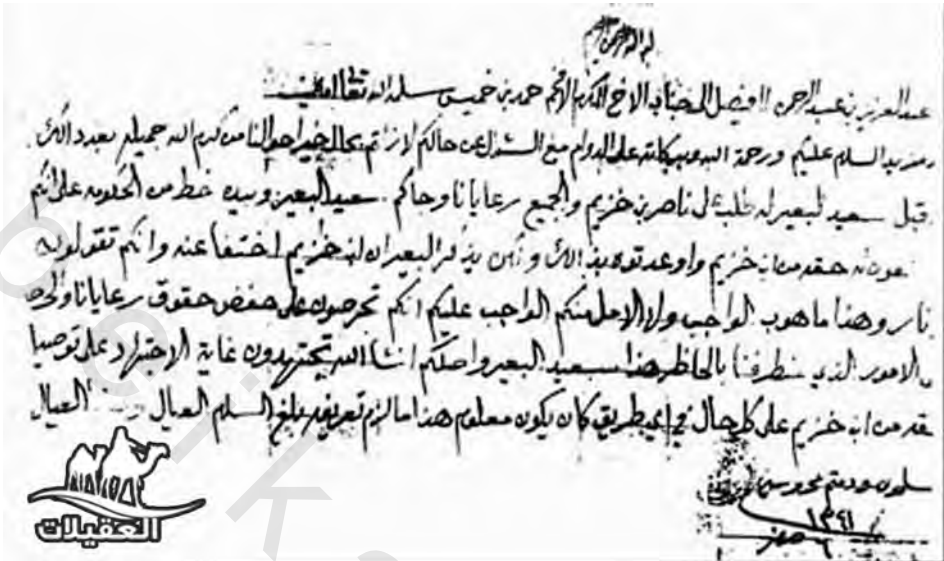 بسم الله الرحمن الرحيم
عبد العزيز بن عبد الرحمن الفيصل إلى جناب الاخ المكرم الافخم حمد بن خميس سلمه الله تعالى
مزيد السلام عليكم ورحمة الله وبركاته على الدوام مع السئوال عن حالكم لا زلتم بحال خير احوالنا من كرم الله جميله بعد ذالك
قبل سعيد البعير له طلب على ناصر بن خزيم والجميع رعايانا وجاكم سعيد البعير وبيده خط من الحكومه على انكم
حقه من ابن خزيم واوعدتوه بذالك و يذكر البعير ان ابن خزيم اختفا عنه وانكم تقولون له
وهذا ما هوب الواجب ولا الامل منكم الواجب عليكم انكم تحرصون على حفض حقوق رعايانا
الامور الذي بطرفنا بالحاظر هذا سعيد البعير واصلكم انشاالله تجتهدون غاية الاجتهاد على توصيا
من ابن خزيم على كل حال في اي طريق كان يكون معلوم هذا ما لزم تعريفه بلغ السلام العيال ومن العيال
يسلمون ودمتم محروسين
١٣٤١
٦ صفر
العقيلات